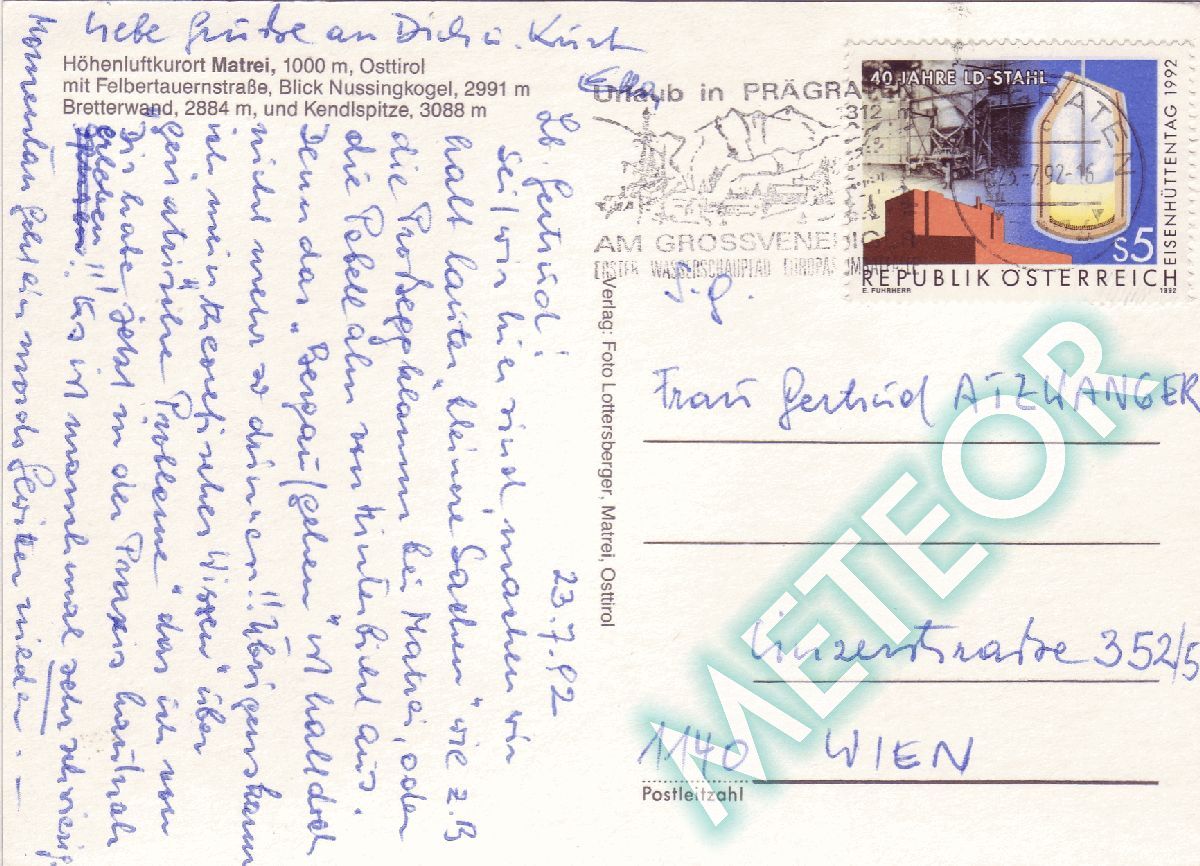 Höhenluftkurort Matrei, 1000 m, Osttirol
mit Felbertauernstraße, Blick Nussingkogel, 2991 m
Bretterwand, 2884 m, und Kendlspitze, 3088 m
23.7.92
Lb. Gertrud!
Seit wir hier sind, machen wir
halt lauter "kleinere Sachen" wie z.B
die Proseggklamm bei Matrei, oder
die Pebell alm von Hinterbichl aus.
Denn das "Bergauf gehen" ist halt doch
nicht mehr so drinnen!! Übrigens kann
ich mein "theoretisches Wissen" über
"geriatrische Probleme" das ich von
Dir habe jetzt in der Praxis hautnah
erleben!! Es ist manchmal sehr schwierig.
Momentan geht ein mords Gewitter nieder. —
Liebe Grüße an Dich u. Kurt
Urlaub in PRÄGRATEN
1312 m
AM GROSSVENEDIGER
ERSTER WASSERSCHAUPFAD EUROPAS UMBALFÄLLE
PRÄGRATEN
23.-7.92-16
40 JAHRE LD-STAHL
EISENHÜTTENTAG 1992
S5
REPUBLIK ÖSTERREICH
E. FUHRHERR
1992
Verlag: Foto Lottersberger, Matrei, Osttirol
Frau Gertrud ATZLANGER
Linzerstraße 352/5
1140 WIEN
Postleitzahl
METEOR